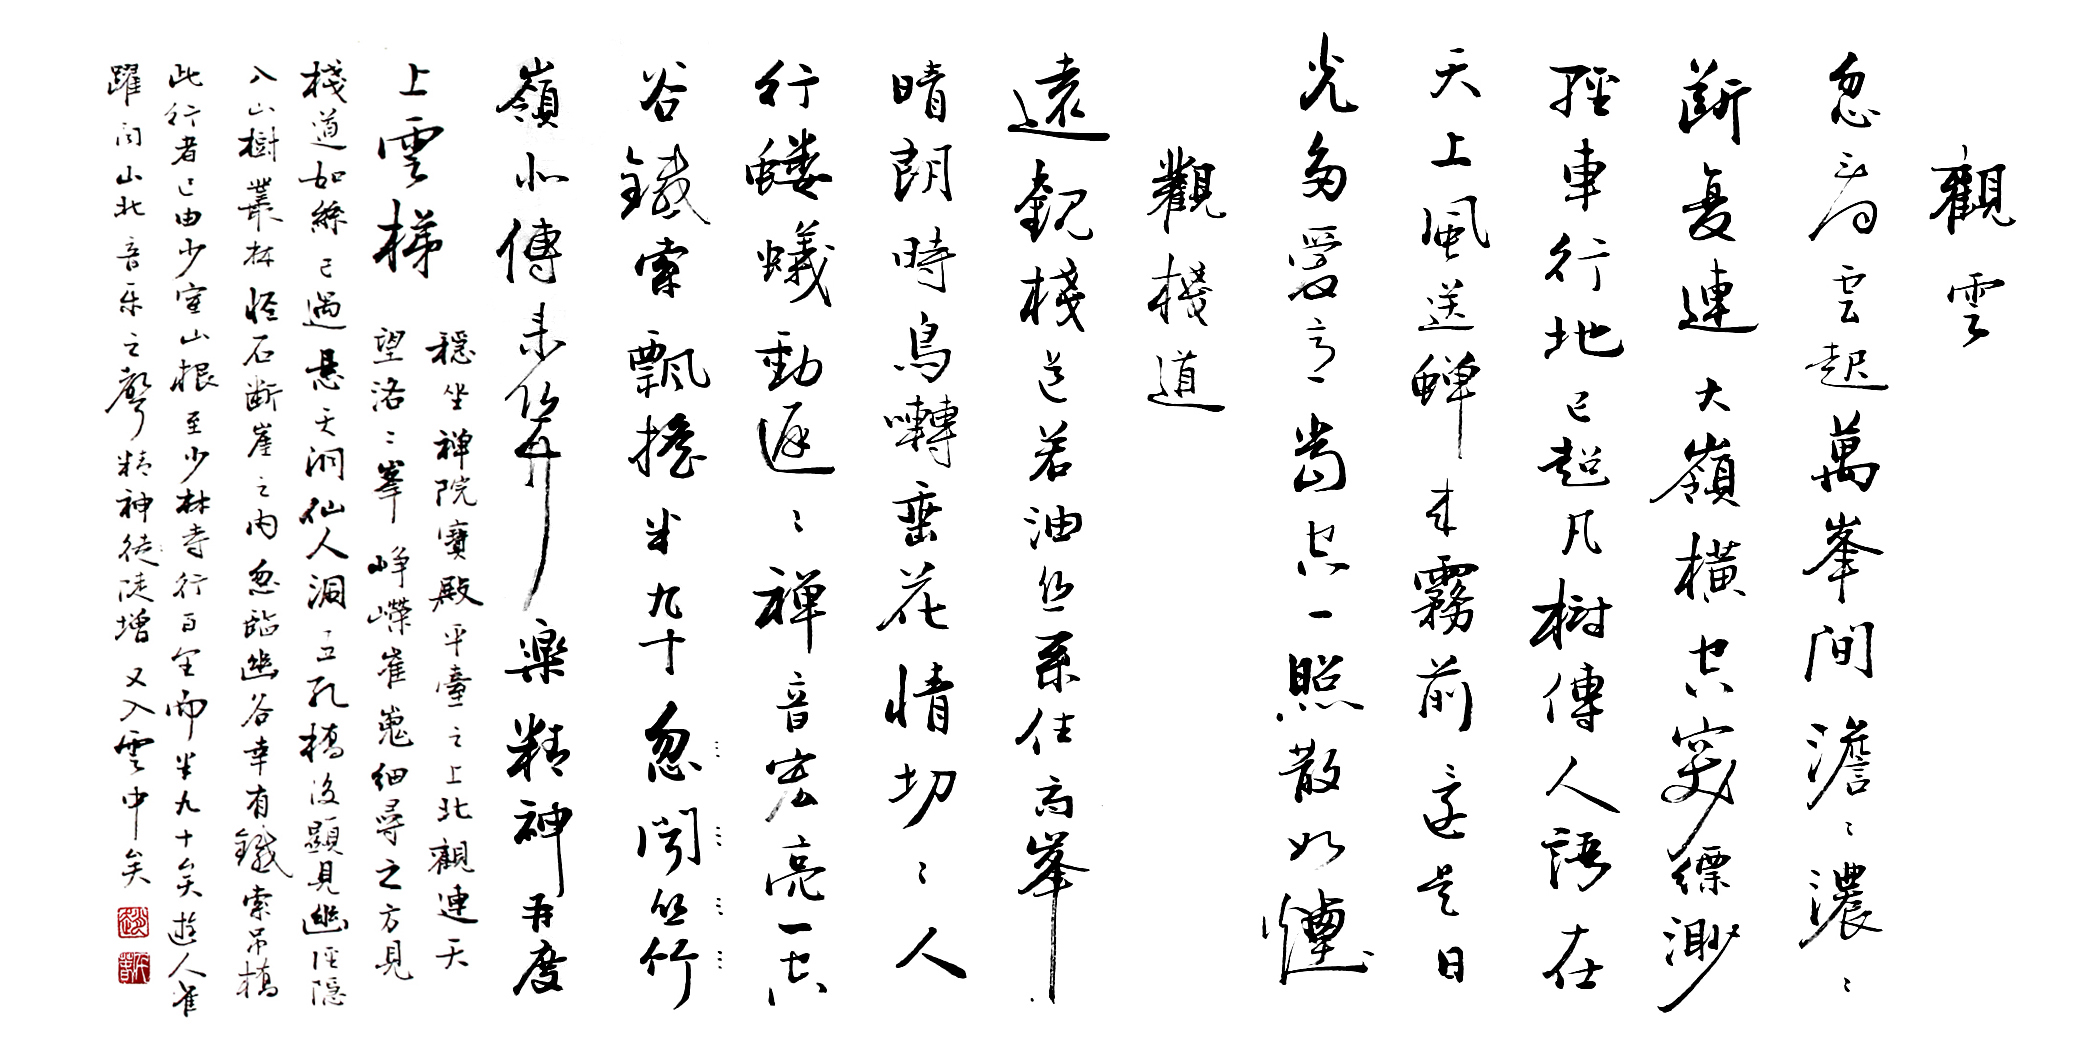 觀雲
忽看雲起萬峯間澹〻濃〻
斷复連大嶺橫空突縹渺
輕車行地已超凡樹傳人語在
天上風送蟬來霧前這是日
光多愛意當空一照散如煙
觀棧道
遠觀棧道若油丝系住高峯
晴朗時鳥囀垂花情切〻人
行螻蟻動遲〻禅音宏亮一空
谷鐵索飄搖半九十忽聞丝竹
嶺北傳未啓樂精神再度
上雲梯
穩坐禅院寶殿平臺之上北觀連天
望洛〻峯崢嶸崔嵬細尋之方見
棧道如絲已過悬天洞仙人洞五孔橋後顯見幽徑隱
入山樹叢林怪石断崖之内忽臨幽谷幸有鐵索吊橋
此行者已由少室山根至少林寺行百里而半九十矣遊人雀
躍闻山北音乐之聲精神陡增又入雲中矣